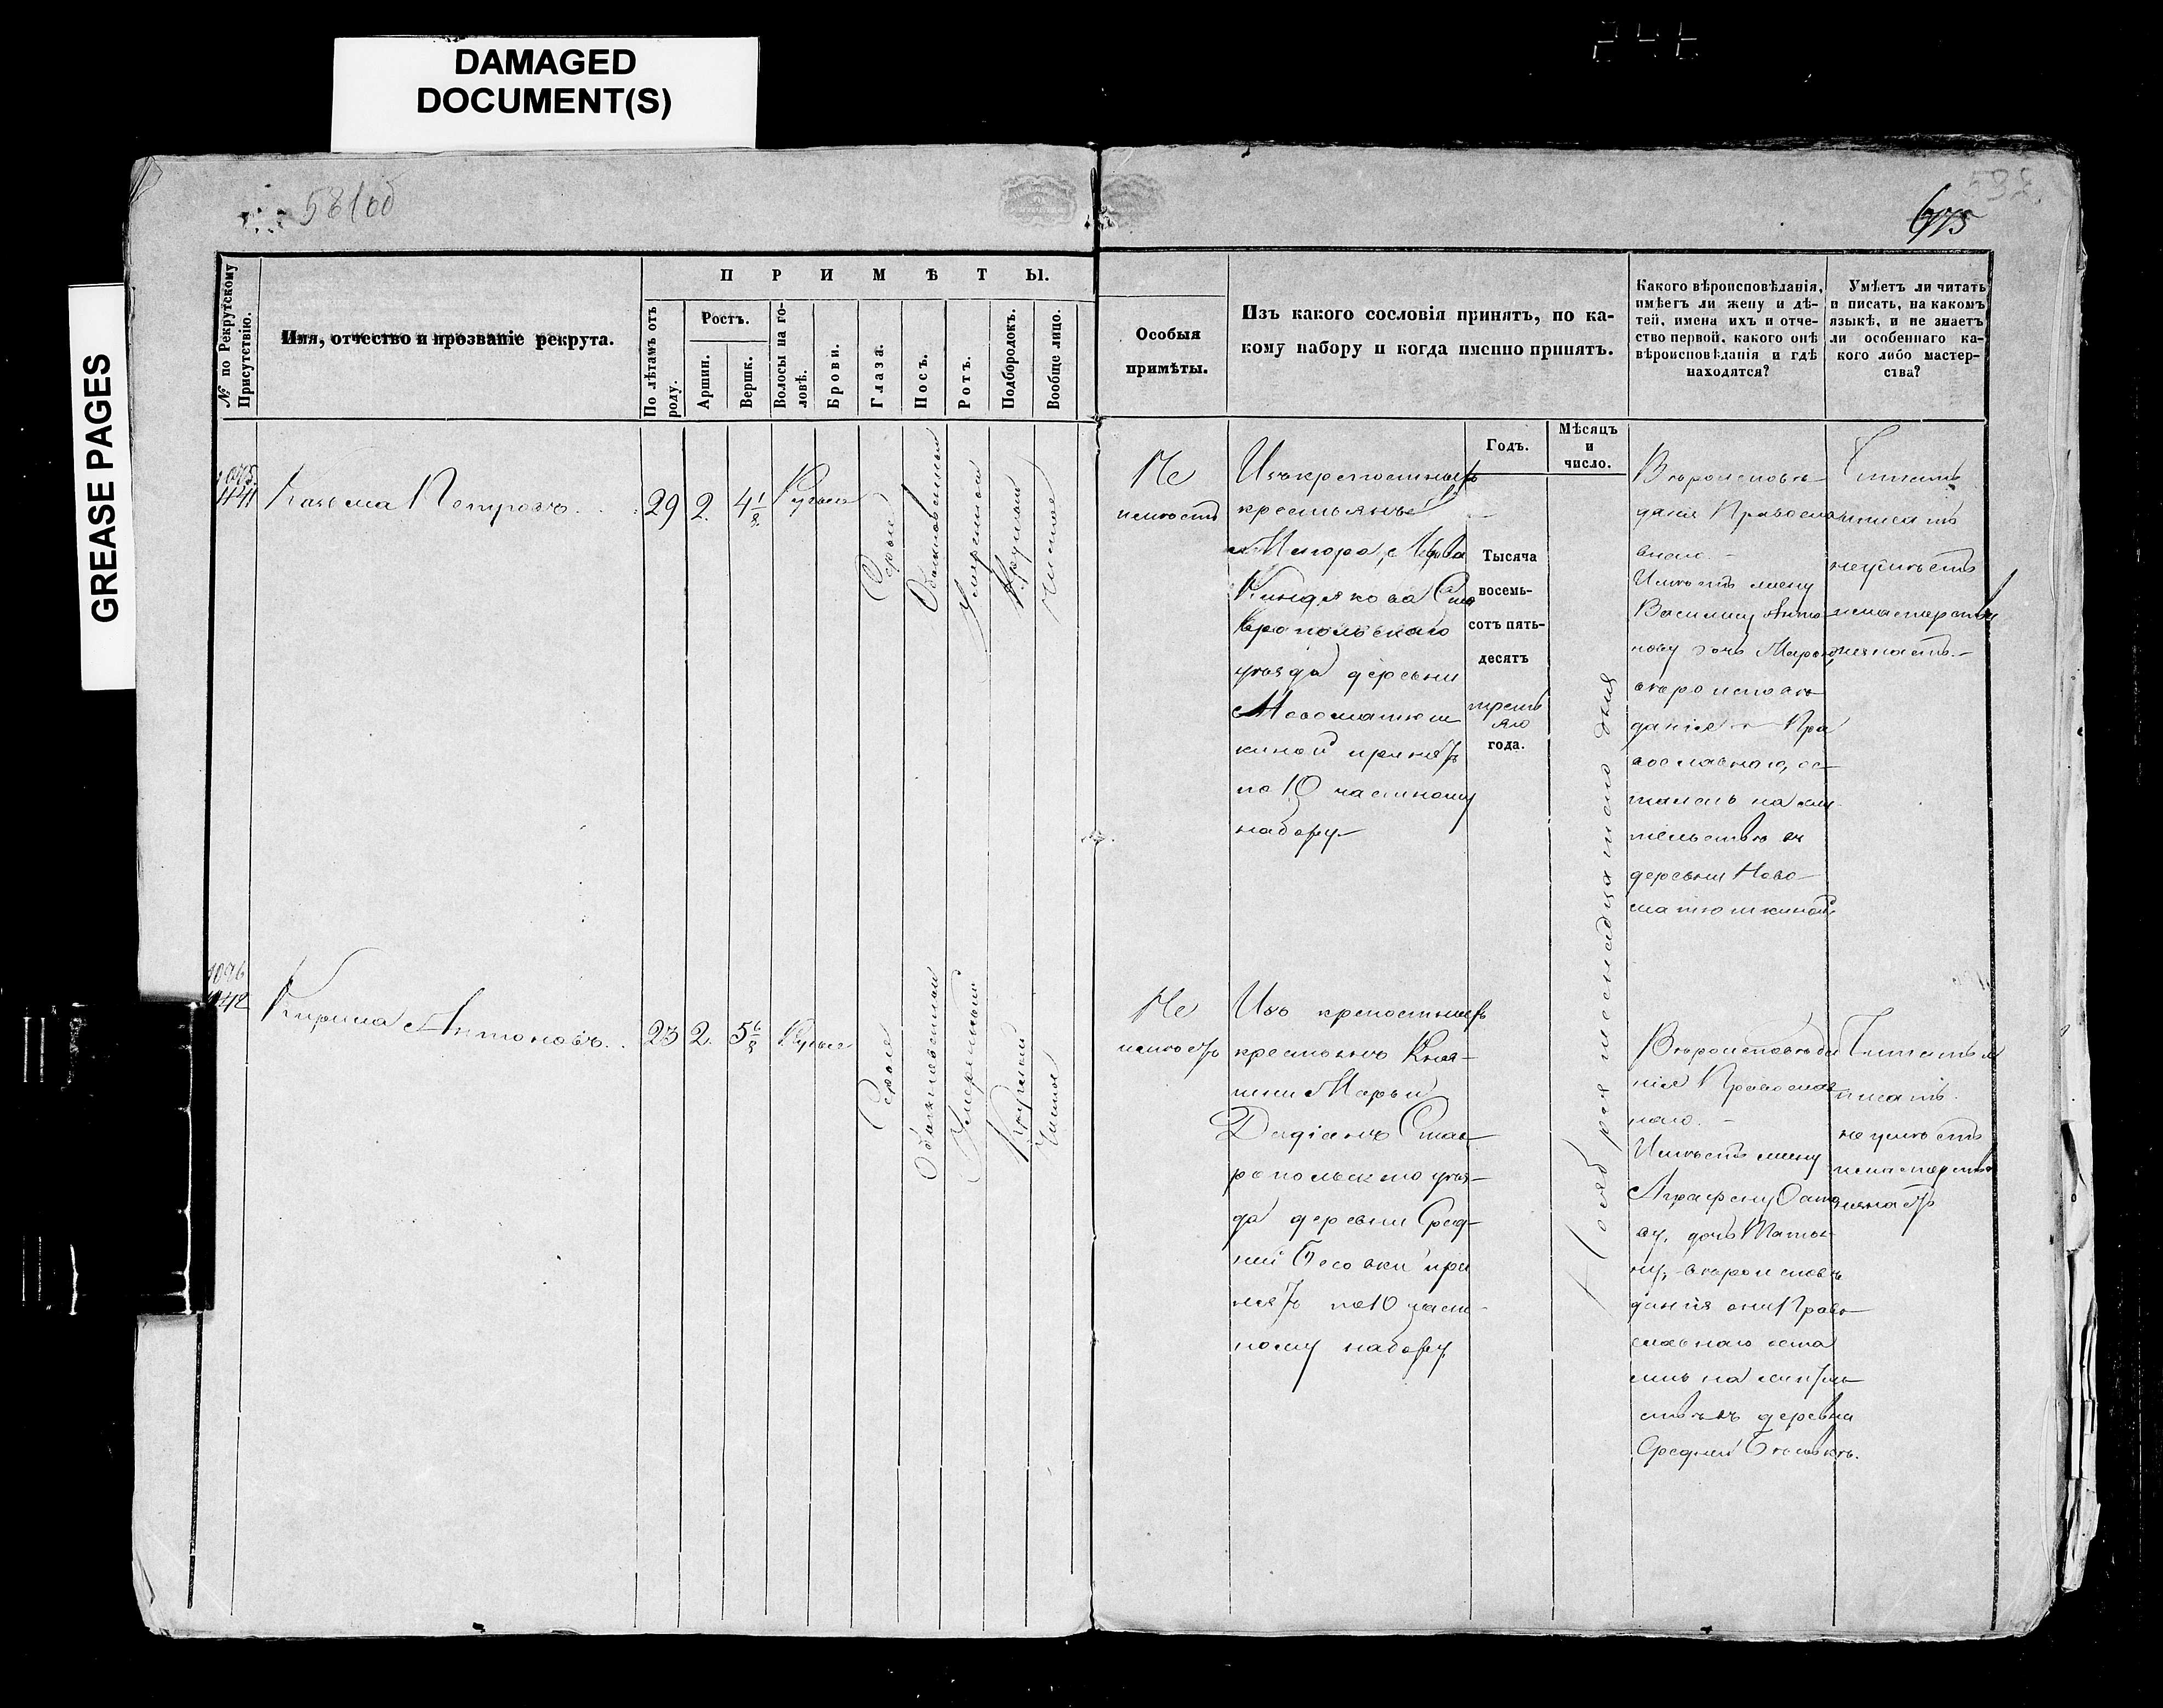 DAMAGED
DOCUMENT(S)
GREASE PAGES
581об
592.
675
№ по Рекрутскому
Присутствію.
Имя, отчество и прозваніе рекрута.
ПРИМѢТЫ.
По лѣтамъ отъ
роду.
Ростъ.
Аршин.
Вершк.
Волосы на го-
ловѣ.
Брови.
Глаза.
Носъ.
Ротъ.
Подбородокъ.
Вообще лицо.
Особыя
примѣты.
Изъ какого сословія принятъ, по ка-
кому набору и когда именно принятъ.
Какого вѣроисповѣданія,
имѣетъ ли жену и дѣ-
тей, имена ихъ и отче-
ство первой, какого онѣ
вѣроисповѣданія и гдѣ
находятся?
Умѣетъ ли читать
и писать, на какомъ
языкѣ, и не знаетъ
ли особеннаго ка-
кого либо мастер-
ства?
Годъ.
Мѣсяцъ
и
число.
1075
1141
Казьма Петровъ
29
2.
4 1/8
Русые
Сѣрые
Обыкновенный
Умеренный
Круглый
Чистое
Не
имѣетъ
Изъ крепостныхъ
крестьянъ
Маіора Льва
Киндякова Ста
вропольскаго
уѣзда деревни
Новоматюш
киной принятъ
по 10 частному
набору
Тысяча
восемь-
сотъ пять-
десятъ
треть
яго
года.
Ноября шеснадцатого дня
Вѣроисповѣ
данія Правосла
внаго.
Имѣетъ жену
Василису Анто
нову дочь Марью
вѣроисповѣ
данія Пра
вославнаго, ос
тались на жи
тельствѣ въ
деревни Ново
матюшкиной
Читать
и писать
не умѣетъ
и мастерства
не знаетъ.
1076
1142
Кирила Антоновъ.
23
2.
5 6/8
Русые
Сѣрые
Обыкновенный
Умеренный
Круглый
Чистое
Не
имѣетъ
Изъ крепостныхъ
крестьянъ Кня
гини Марьи
Дадіанъ Став
ропольскаго уѣз
да деревни Сред
ней Бесовки при
нятъ по 10 част
ному набору
Вѣроисповѣда
нія Православ
наго.
Имѣетъ жену
Аграфену
ву, дочь Матре
ну, вѣроисповѣ
данія они Право
славнаго оста
лись на житель
ствѣ въ деревни
Средней Бесовкѣ.
Читать и
писать
не умѣетъ
и мастерства
не знаетъ